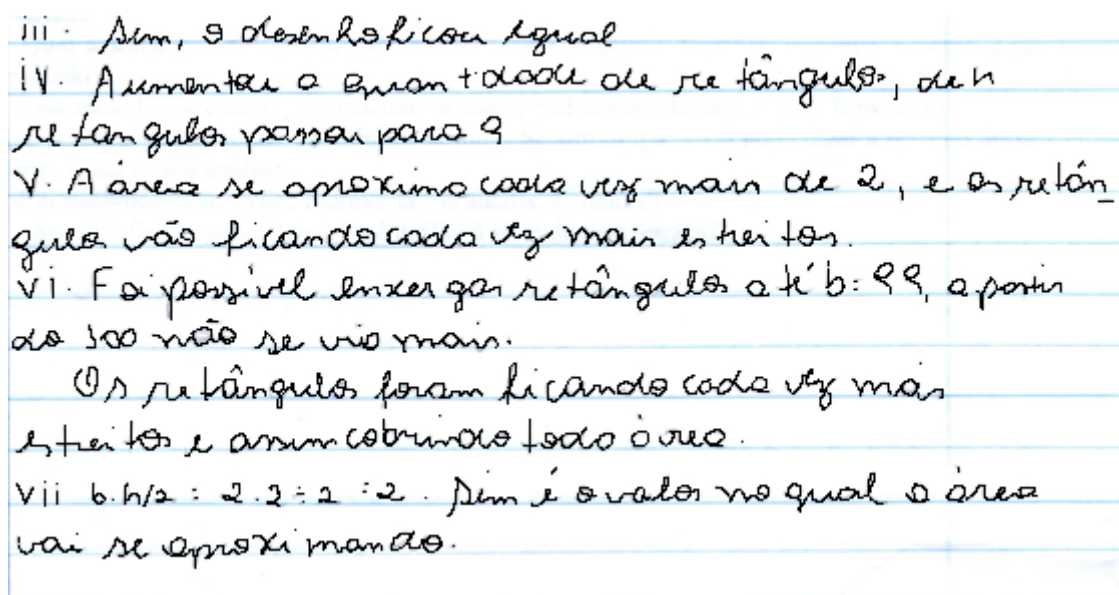 iii. Sim, o desenho ficou igual
iv. Aumentou a quantidade de retângulos, de 4
retangulos passou para 9
V. A área se aproxima cada vez mais de 2, e os retân_
gulos vão ficando cada vez mais estreitos.
vi. Foi possível enxergar retângulos até b: 99, a partir
do 100 não se viu mais.
Os retângulos foram ficando cada vez mais
estreitos e assim cobrindo toda área.
vii b.h/2 = 2.2÷2 = 2. Sim é o valor no qual a área
vai se aproximando.